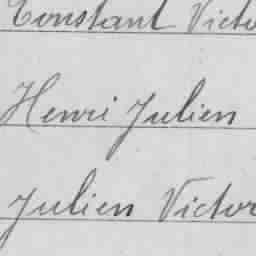 Constant Victo
Henri Julien
Julien Victor